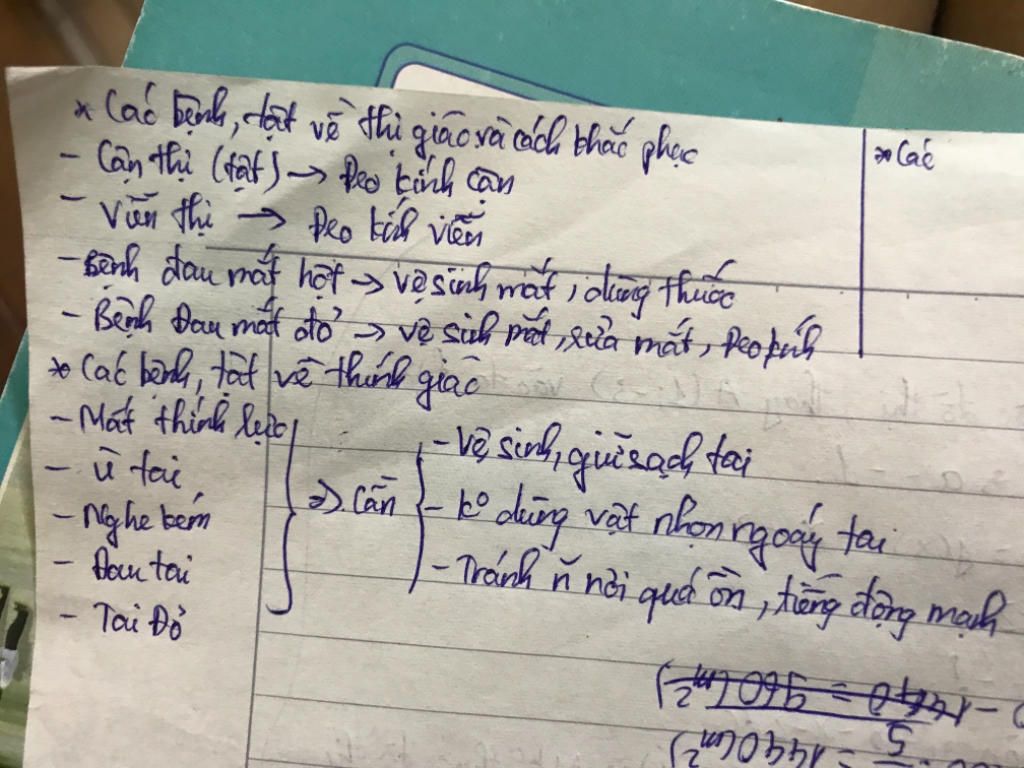 * Các bệnh, tật về thị giác và cách khắc phục
- Cận thị (tật) → Đeo kính cận
- Viễn thị → Đeo kính viễn
- Bệnh đau mắt hột → vệ sinh mắt, dùng thuốc
- Bệnh Đau mắt đỏ → vệ sinh mắt, rửa mắt, Đeo kính
* Các bệnh, tật về thính giác
- Mất thính lực
- ù tai
- Nghe kém
- Đau tai
- Tai Đỏ
=> Cần
- Vệ sinh, giữ sạch tai
- ko dùng vật nhọn ngoáy tai
- Tránh n~ nơi quá ồn, tiếng động mạnh
* Các
= 960 (cm²)
5
= 1440 (cm²)